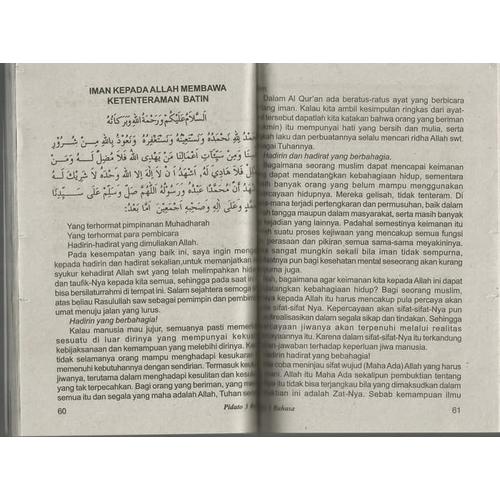 IMAN KEPADA ALLAH MEMBAWA
KETENTERAMAN BATIN
اَلسَّلاَمُ عَلَيْكُمْ وَرَحْمَةُ اللهِ وَبَرَكَاتُهُ
لِلّٰهِ نَحْمَدُهُ وَنَسْتَعِيْنُهُ وَنَسْتَغْفِرُهُ وَنَعُوْذُ بِاللهِ مِنْ شُرُوْرِ
وَمِنْ سَيِّئَاتِ أَعْمَالِنَا مَنْ يَهْدِى اللهُ فَلاَ مُضِلَّ لَهُ وَمَنْ
فَلاَ هَادِيَ لَهُ، أَشْهَدُ أَنْ لاَ إِلٰهَ إِلاَّ اللهُ وَحْدَهُ لاَ شَرِيْكَ لَهُ
أَنَّ مُحَمَّدًا عَبْدُهُ وَرَسُوْلُهُ اَللّٰهُمَّ صَلِّ وَسَلِّمْ عَلَى سَيِّدِنَا
وَعَلَى آلِهِ وَصَحْبِهِ أَجْمَعِيْنَ أَمَّا بَعْدُ:
Yang terhormat pimpinanan Muhadharah
Yang terhormat para pembicara
Hadirin-hadirat yang dimuliakan Allah.
Pada kesempatan yang baik ini, saya ingin
kepada hadirin dan hadirat sekalian,untuk memanjatkan
syukur kehadirat Allah swt yang telah melimpahkan
dan taufik-Nya kepada kita semua, sehingga pada saat ini
bisa bersilaturahmi di tempat ini. Salam sejahtera semoga
atas beliau Rasulullah saw sebagai pemimpin dan
umat menuju jalan yang lurus.
Hadirin yang berbahagia!
Kalau manusia mau jujur, semuanya pasti
sesuatu di luar dirinya yang mempunyai
kebijaksanaan dan kemampuan yang melebihi dirinya.
tidak selamanya orang mampu menghadapi
memenuhi kebutuhannya dengan sendirian. Termasuk
jiwanya, terutama dalam menghadapi kesulitan dan
yang tak terpecahkan. Bagi orang yang beriman, yang
semua itu dan segala yang maha adalah Allah, Tuhan
60
Pidato 3
Dalam Al Qur'an ada beratus-ratus ayat yang berbicara
iman. Kalau kita ambil kesimpulan ringkas dari ayat-
tersebut dapatlah kita katakan bahwa orang yang beriman
itu mempunyai hati yang bersih dan mulia, serta
laku dan perbuatannya selalu mencari ridha Allah swt.
Tuhannya.
Hadirin dan hadirat yang berbahagia.
Bagaimana seorang muslim dapat mencapai keimanan
dapat mendatangkan kebahagiaan hidup, sementara
banyak orang yang belum mampu menggunakan
hidupnya. Mereka gelisah, tidak tenteram. Di
mana terjadi pertengkaran dan permusuhan, baik dalam
tangga maupun dalam masyarakat, serta masih banyak
kejahatan yang lainnya. Padahal semestinya keimanan itu
suatu proses kejiwaan yang mencakup semua fungsi
perasaan dan pikiran semua sama-sama meyakininya.
sangat mungkin sekali bila iman tidak sempurna,
pun bagi kesehatan mental seseorang akan kurang
juga.
bagaimana agar keimanan kita kepada Allah ini dapat
kebahagiaan hidup? Bagi seorang muslim,
kepada Allah itu harus mencakup pula percaya akan
sifat-sifat Nya. Kepercayaan akan sifat-sifat-Nya pun
dalam segala sikap dan tindakan. Sehingga
jiwanya akan terpenuhi melalui realitas
itu. Karena dalam sifat-sifat-Nya itu terkandung
jawaban terhadap keperluan jiwa manusia.
hadirat yang berbahagia!
coba meninjau sifat wujud (Maha Ada) Allah yang harus
Allah itu Maha Ada sekalipun pembuktian tentang
itu tidak bisa terjangkau bila yang dimaksudkan dalam
ini adalah Zat-Nya. Sebab kemampuan ilmu
Bahasa
61